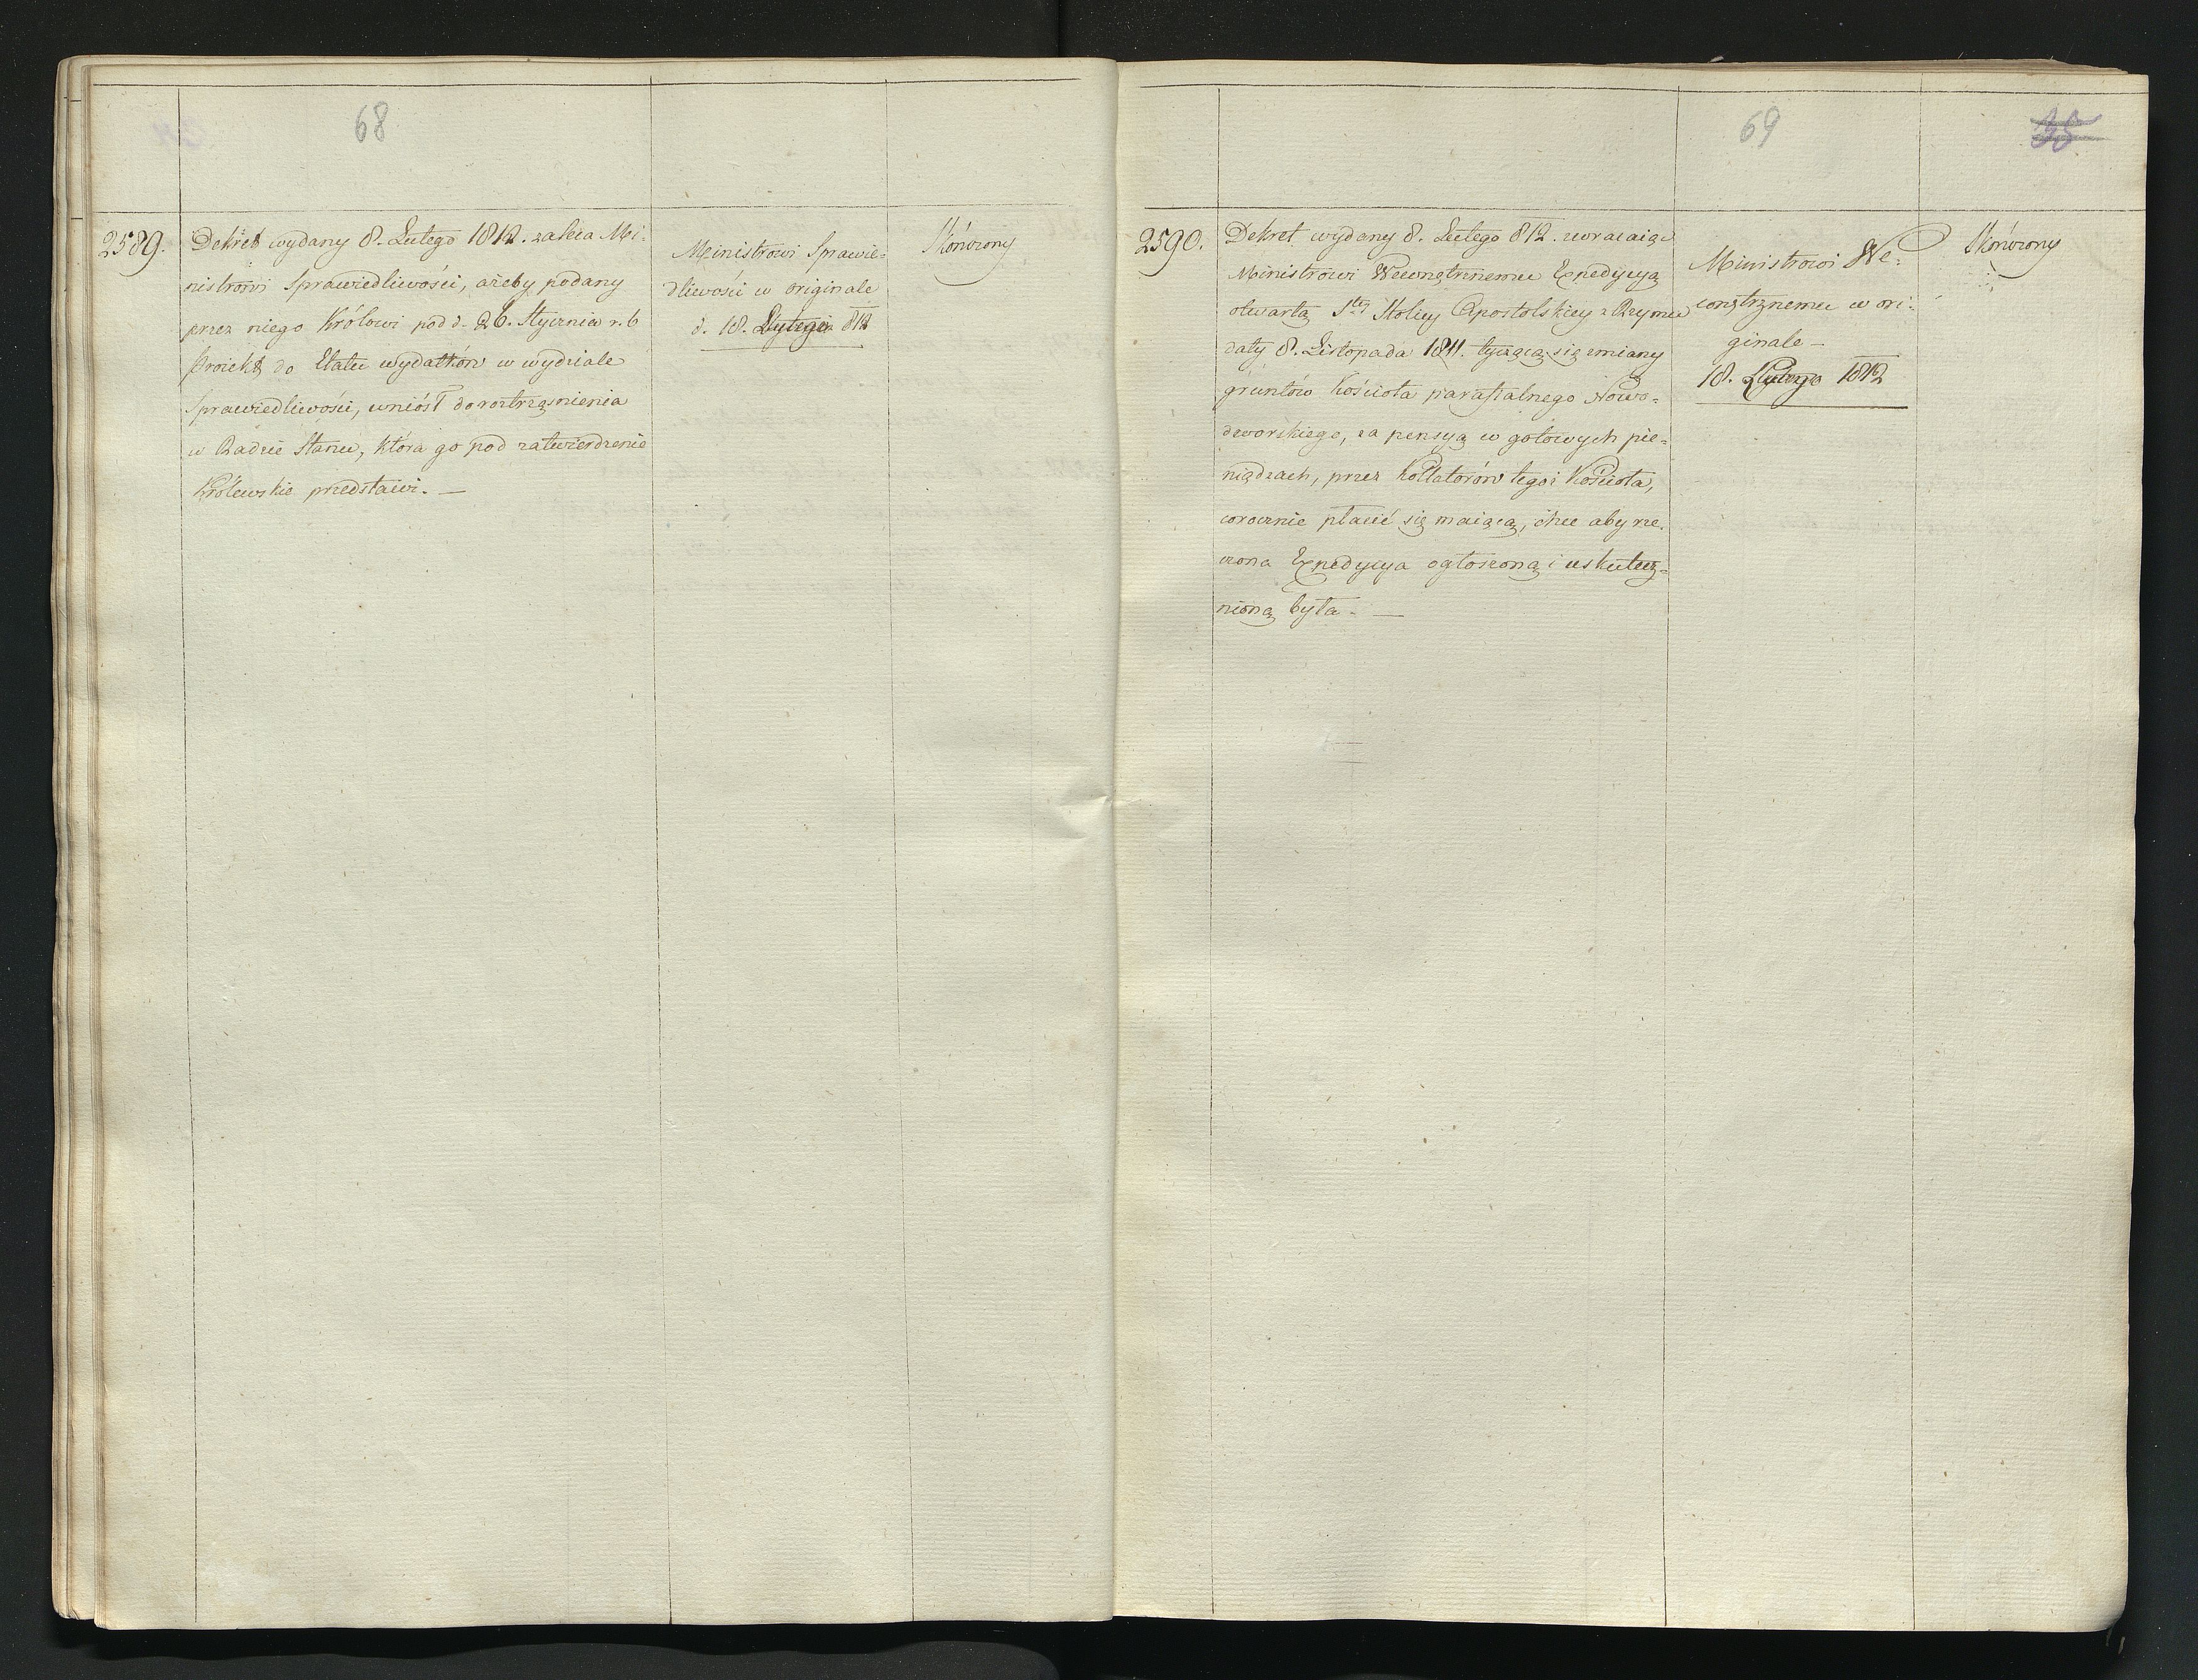 68
2589.
Dekret wydany 8. Lutego 1812. zaleca Mi-
nistrowi Sprawiedliwości, ażeby podany
przez niego Królowi pod d. 26. Stycznia r. b
Proiekt do Etatu wydatków w wydziale
Sprawiedliwości, wniósł do roztrząśnienia
w Radzie Stanu, która go pod zatwierdzenie
Królewskie przedstawi. —
Ministrowi Sprawie-
dliwości w originale
d. 18. Lutego 812
Skończony
69
35
2590.
Dekret wydany 8. Lutego 812. zwracaiąc
Ministrowi Wewnętrznemu Expedycyą
otwartą Stey Stolicy Apostolskiey z Rzymu
daty 8. Listopada 1811. tyczącą się zmiany
gruntów Kościoła parafialnego Nowo-
dworskiego, za pensyą w gotowych pie-
niądzach, przez Kollatorów tegoż Kościoła,
corocznie płacić się maiącą, chce aby rze-
czona Expedycya ogłoszoną i uskutecz-
nioną była. —
Ministrowi We-
wnętrznemu w ori-
ginale —
18. Lutego 1812
Skończony